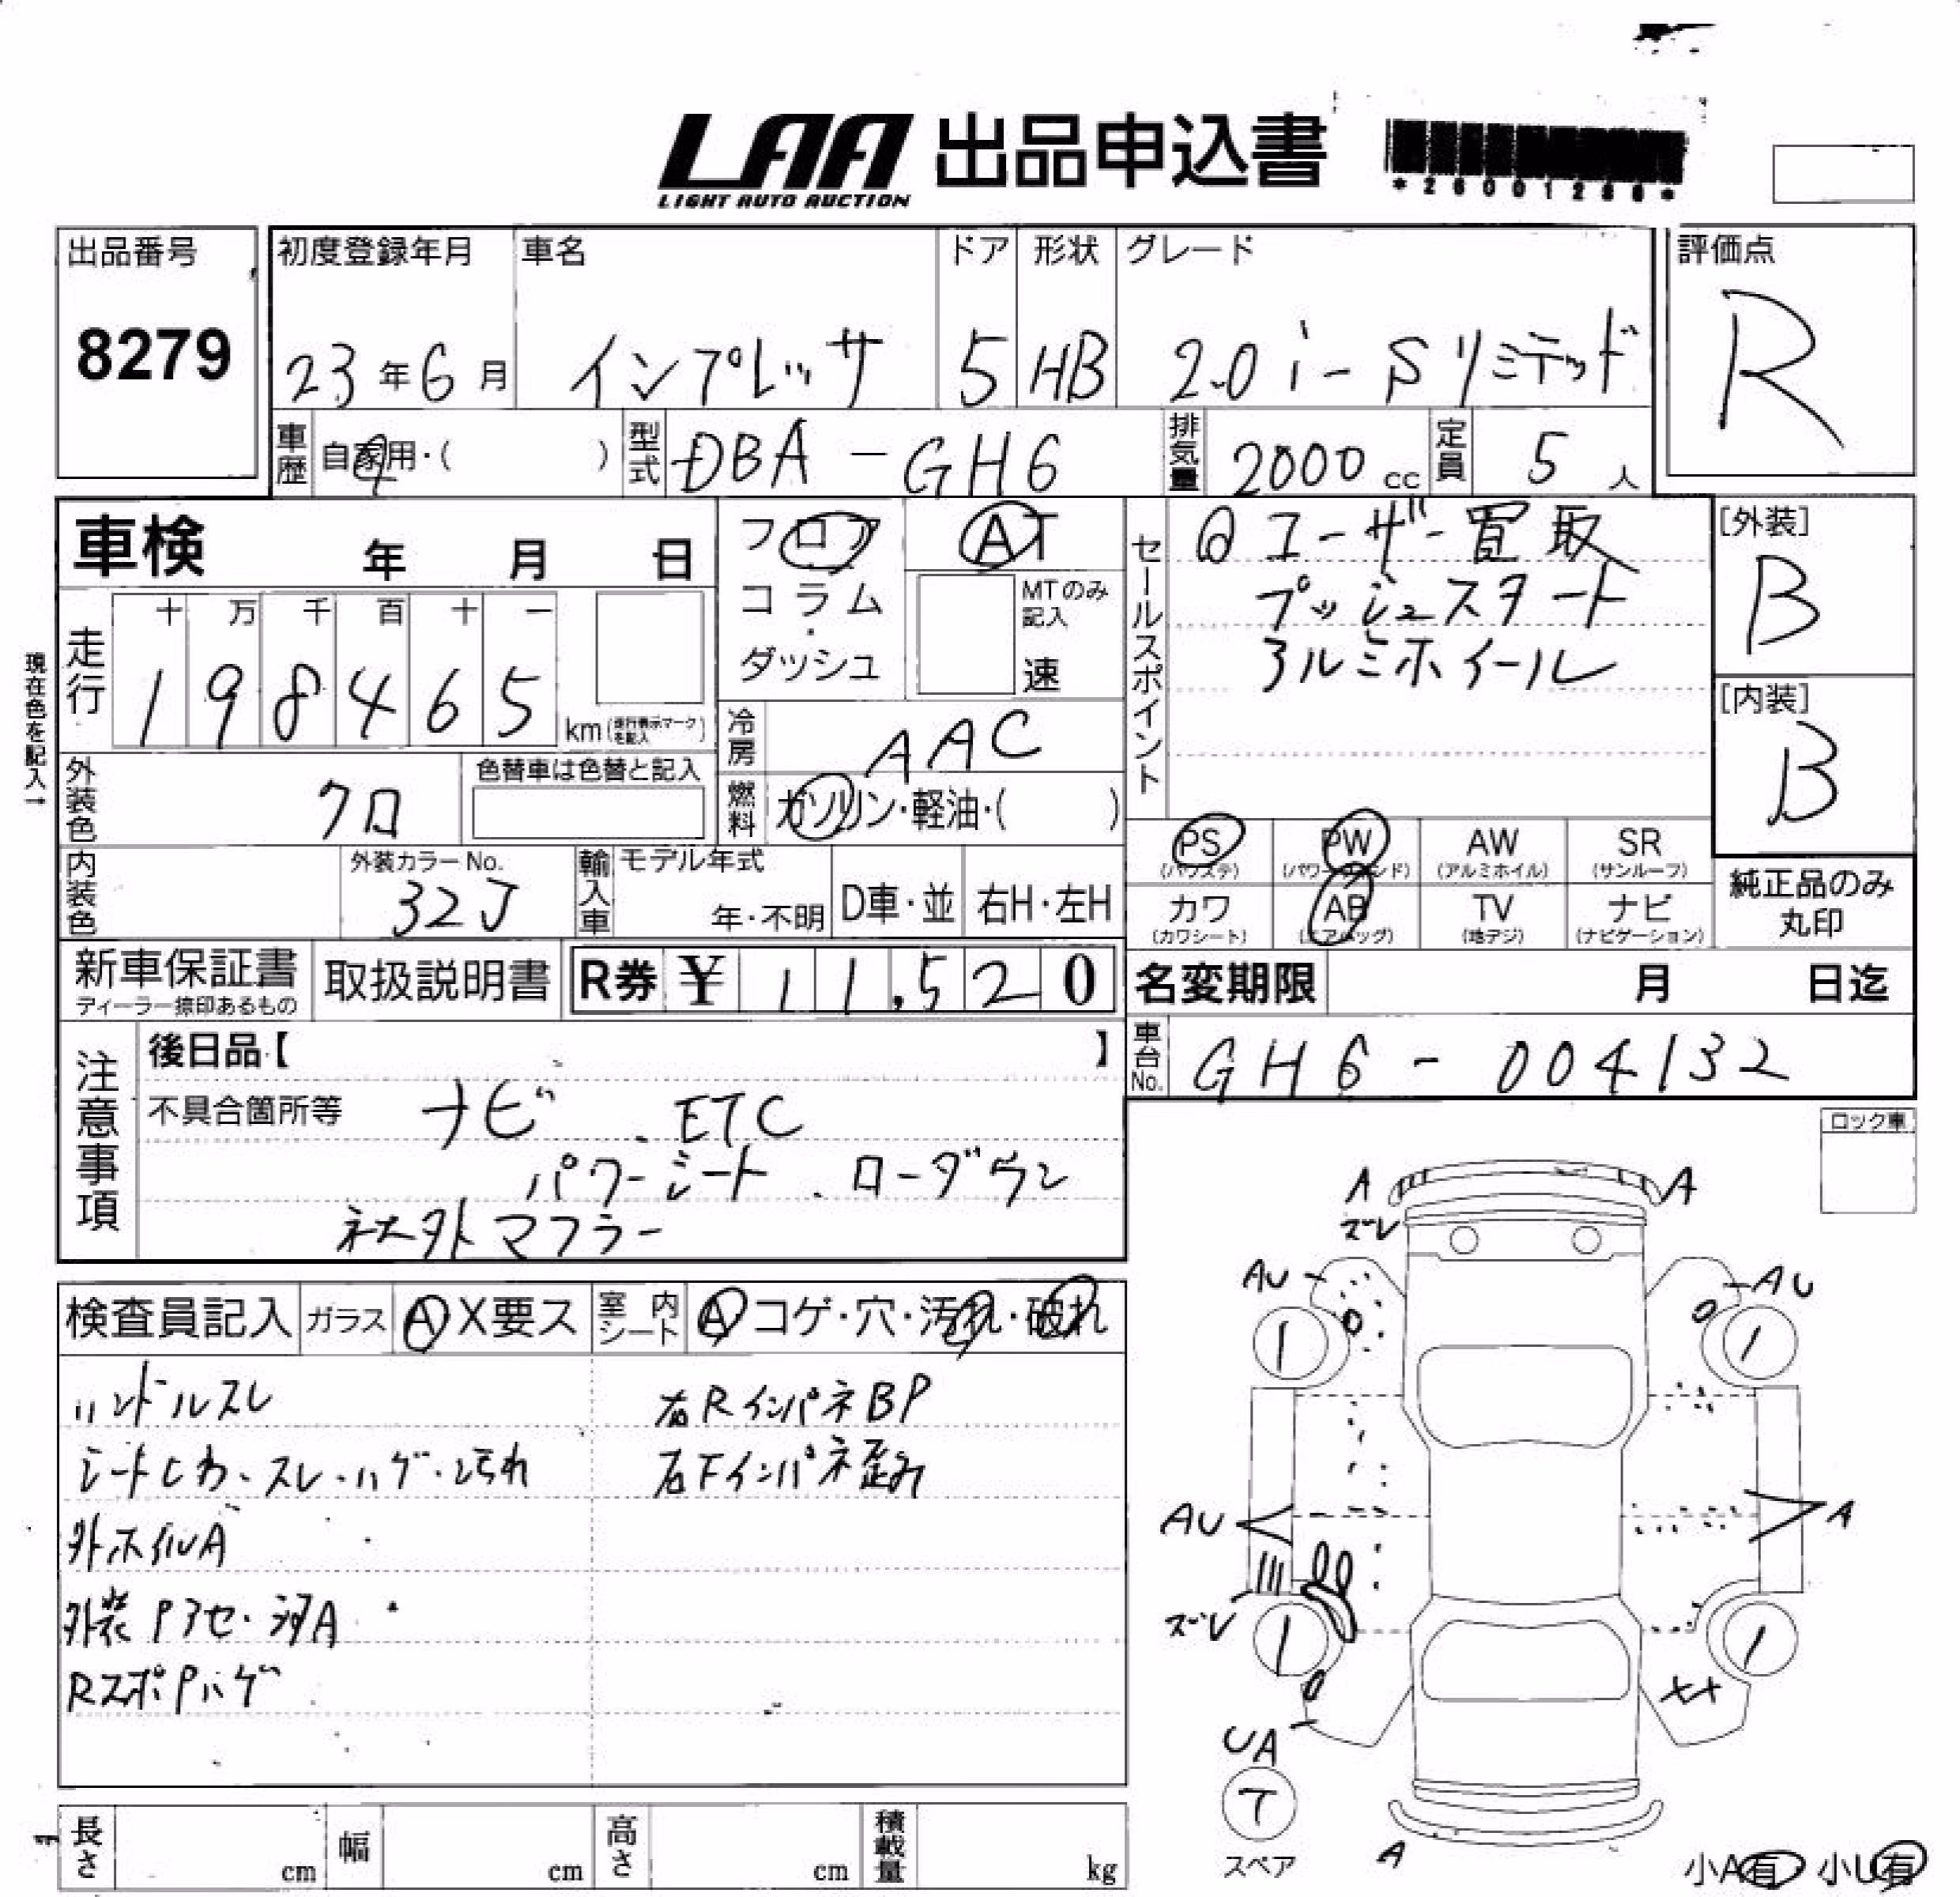 LAA 出品申込書
LIGHT AUTO AUCTION
出品番号
8279
初度登録年月
23年6月
車名
インプレッサ
ドア
5
形状
HB
グレード
2.0 i-Sリミテッド
評価点
R
車歴 自家用・( )
型式 DBA-GH6
排気量 2000 cc
定員 5 人
車検 年 月 日
フロア
コラム
・
ダッシュ
AT
MTのみ
記入
速
セールスポイント
ユーザー買取
プッシュスタート
アルミホイール
[外装]
B
[内装]
B
現在色を記入→
走行
十 万 千 百 十 一
1 9 8 4 6 5
km(走行表示マークを記入)
冷房 AAC
燃料 ガソリン・軽油・( )
外装色 クロ
色替車は色替と記入
内装色
外装カラーNo.
32J
輸入車
モデル年式
年・不明
D車・並
右H・左H
PS
(パワステ)
PW
AW
(アルミホイル)
SR
(サンルーフ)
カワ
(カワシート)
AB
(エアバッグ)
TV
(地デジ)
ナビ
(ナビゲーション)
純正品のみ
丸印
新車保証書
ディーラー捺印あるもの
取扱説明書
R券 ¥ 11,520
名変期限 月 日迄
車台No. GH6-004132
注意事項
後日品【 】
不具合箇所等 ナビ、ETC
パワーシート、ローダウン
社外マフラー
ロック車
検査員記入
ガラス A X要ス
室内シート A コゲ・穴・汚れ・破れ
ハンドルスレ
シートしわ・スレ・ハゲ・汚れ
外ホイルA
外装Pアセ・flA
RスポPハゲ
右RインパネBP
右Fインパネ歪み
A A
ズレ
AU AU
1 1
AU A
ズレ
1 1
UA
T
スペア
A
小A有 小U有
長さ cm
幅 cm
高さ cm
積載量 kg